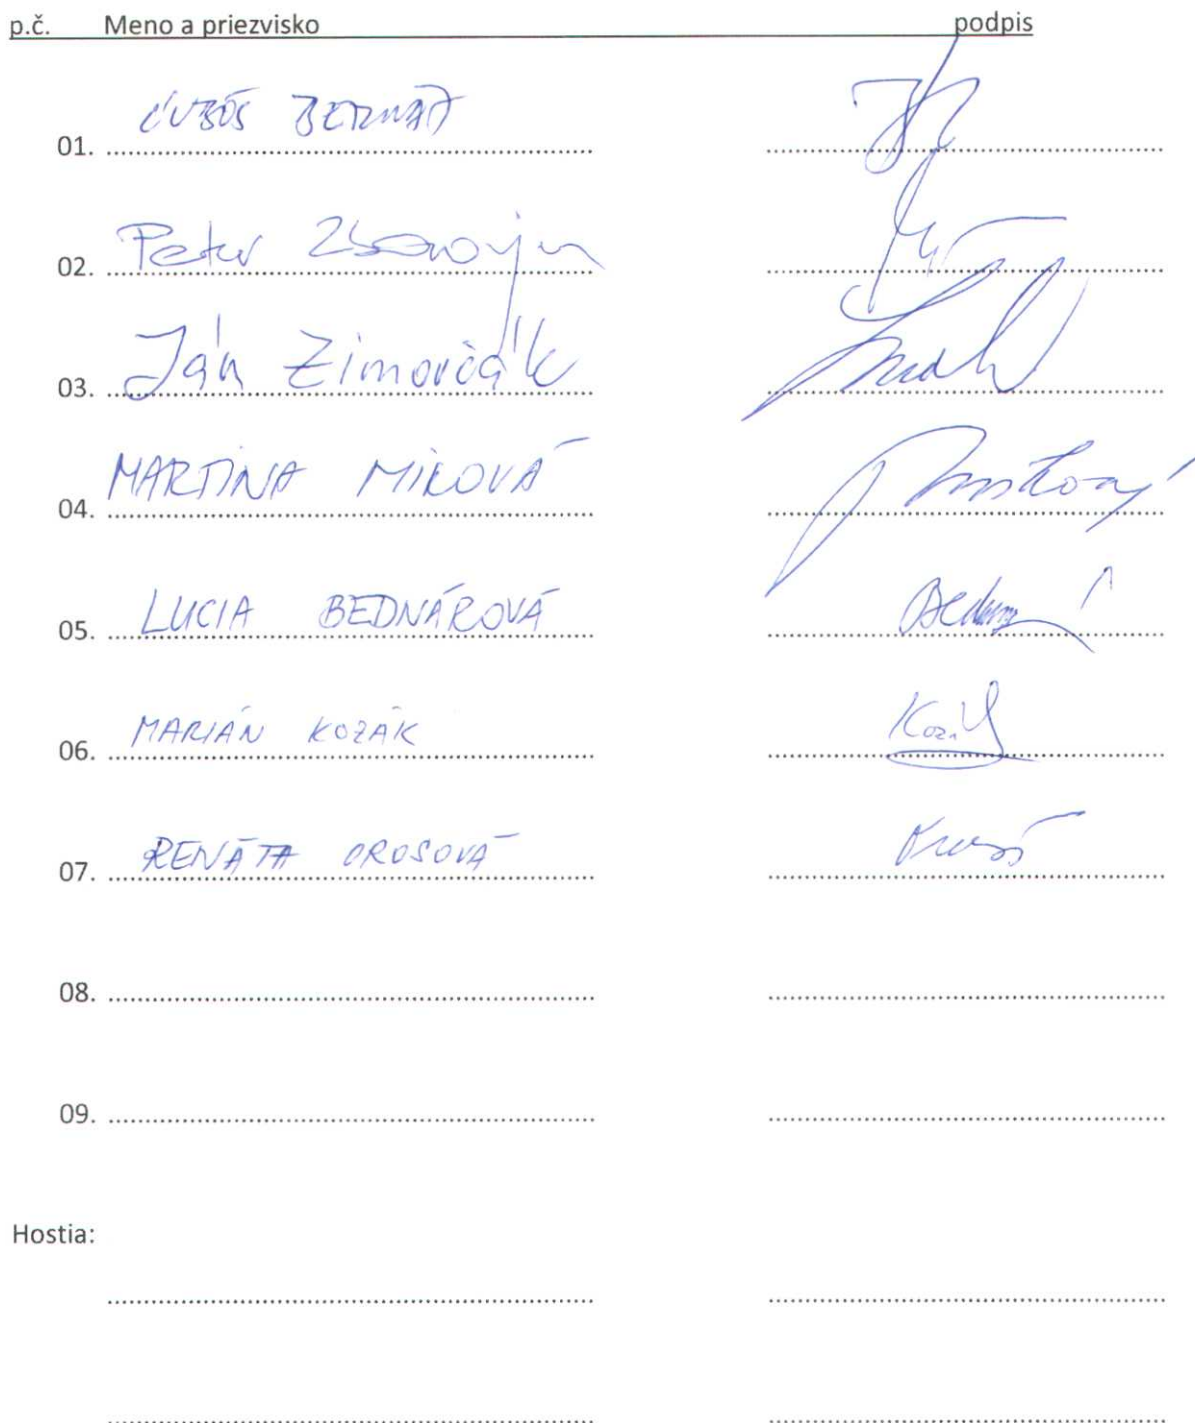 p.č. Meno a priezvisko podpis
01. ĽUBOŠ BERNÁT
02. Peter
03. Ján Zimovčák
04. MARTINA MIKOVÁ
05. LUCIA BEDNÁROVÁ
06. MARIÁN KOZÁK
07. RENÁTA OROSOVÁ
08.
09.
Hostia: